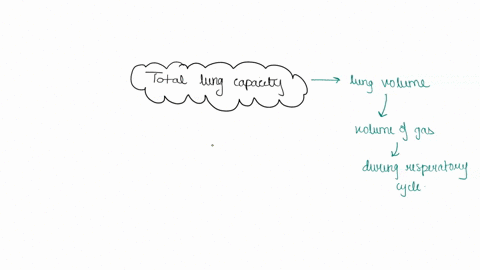 Total lung capacity
lung volume
volume of gas
during respiratory
cycle.